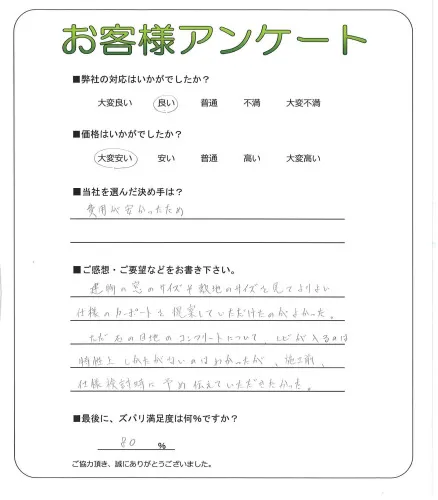 お客様アンケート
■弊社の対応はいかがでしたか?
大変良い 良い 普通 不満 大変不満
■価格はいかがでしたか?
大変安い 安い 普通 高い 大変高い
■当社を選んだ決め手は?
費用が安かったため
■ご感想・ご要望などをお書き下さい。
建物の窓のサイズや敷地のサイズを見てよりよい
仕様のカーポートを提案していただけたのがよかった。
ただ 目地のコンクリートについて、ヒビが入るのは
特性上しかたがないのはわかったが、施工前、
仕様検討時に予め伝えていただきたかった。
■最後に、ズバリ満足度は何%ですか?
80 %
ご協力頂き、誠にありがとうございました。